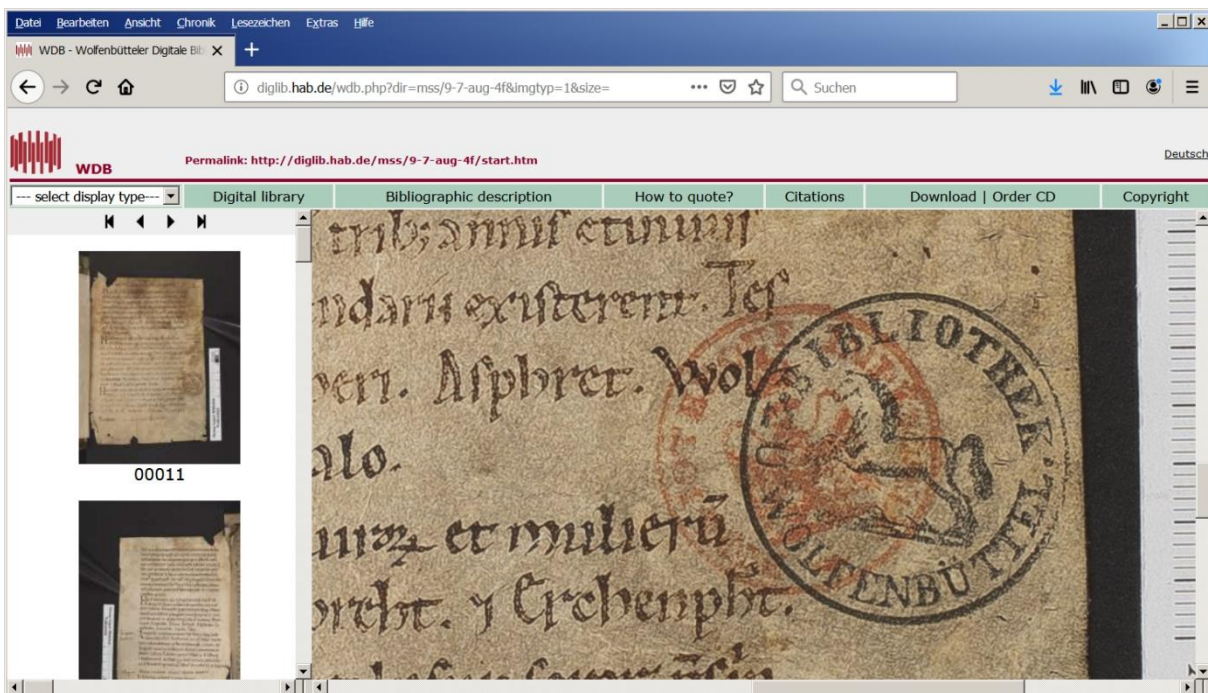 Datei Bearbeiten Ansicht Chronik Lesezeichen Extras Hilfe
WDB - Wolfenbütteler Digitale Bib
diglib.hab.de/wdb.php?dir=mss/9-7-aug-4f&imgtyp=1&size= Suchen
WDB Permalink: http://diglib.hab.de/mss/9-7-aug-4f/start.htm Deutsch
--- select display type--- Digital library Bibliographic description How to quote? Citations Download | Order CD Copyright
00011
trib; annis
existerent. Tes
Asphret. Wol
alo.
et mulierū
BIBLIOTHEK.
WOLFENBÜTTEL.